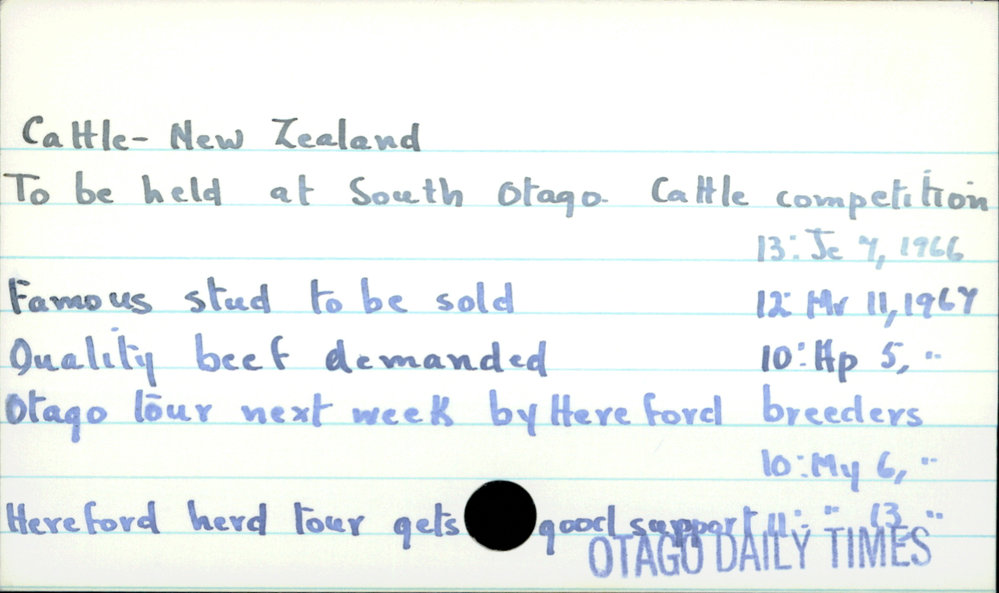 Cattle- New Zealand
To be held at South Otago. Cattle competition
13: Je 7, 1966
Famous stud to be sold 12: Mr 11, 1967
Quality beef demanded 10: Ap 5, "
Otago tour next week by Hereford breeders
10: My 6, "
Hereford herd tour gets good support 11: " 13, "
OTAGO DAILY TIMES